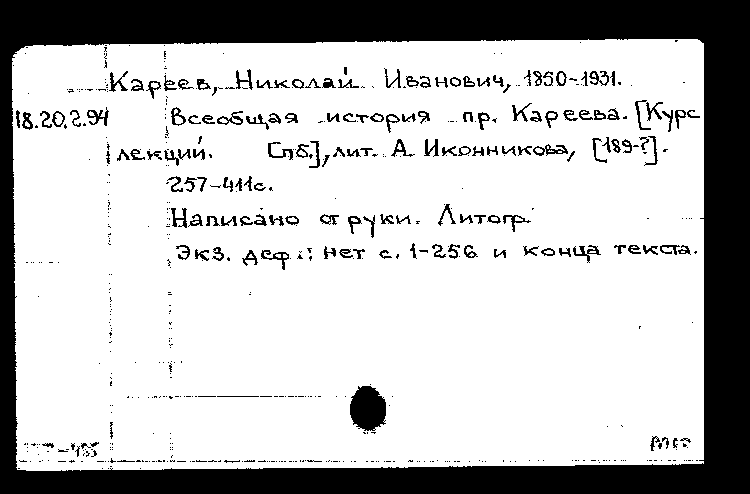 Кареев, Николай Иванович, 1850-1931.
18.20.2.94 Всеобщая история пр. Кареева. [Курс
лекций. Спб.], лит. А. Иконникова, [189-?].
257-411с.
Написано от руки. Литогр.
Экз. деф.: нет с. 1-256 и конца текста.